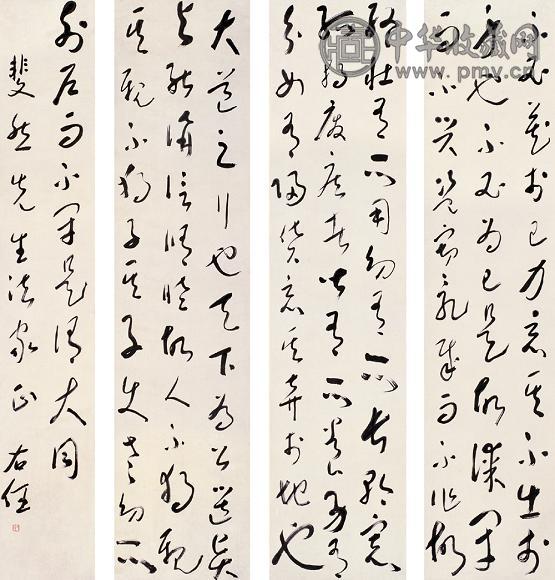 大道之行也天下為公選賢
與能講信修睦故人不獨親
其親不獨子其子使老有所
終壯有所用幼有所長矜寡
孤獨廢疾者皆有所養男有
分女有歸貨惡其棄於地也
不必藏於己力惡其不出於
身也不必為己是故謀閉
而不興盜竊亂賊而不作故
外戶而不閉是謂大同
斐然先生法家正 右任
中华收藏网
www.pmv.cn